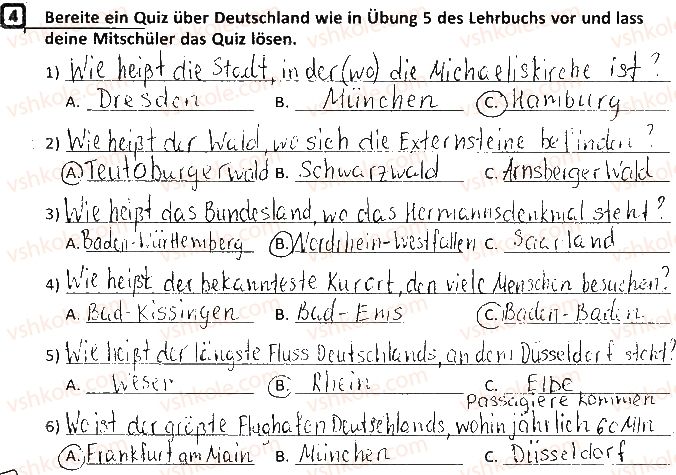 4 Bereite ein Quiz über Deutschland wie in Übung 5 des Lehrbuchs vor und lass
deine Mitschüler das Quiz lösen.
1) Wie heißt die Stadt, in der (wo) die Michaeliskirche ist?
A. Dresden B. München C. Hamburg
2) Wie heißt der Wald, wo sich die Externsteine befinden?
A. Teutoburgerwald B. Schwarzwald C. Arnsberger Wald
3) Wie heißt das Bundesland, wo das Hermannsdenkmal steht?
A. Baden-Württemberg B. Nordrhein-Westfallen C. Saarland
4) Wie heißt der bekannteste Kurort, den viele Menschen besuchen?
A. Bad-Kissingen B. Bad-Ems C. Baden-Baden
5) Wie heißt der längste Fluss Deutschlands, an dem Düsseldorf steht?
A. Weser B. Rhein C. Elbe
Passagiere kommen
6) Wo ist der größte Flughafen Deutschlands, wohin jährlich 60 Mln
A. Frankfurt am Main B. München C. Düsseldorf